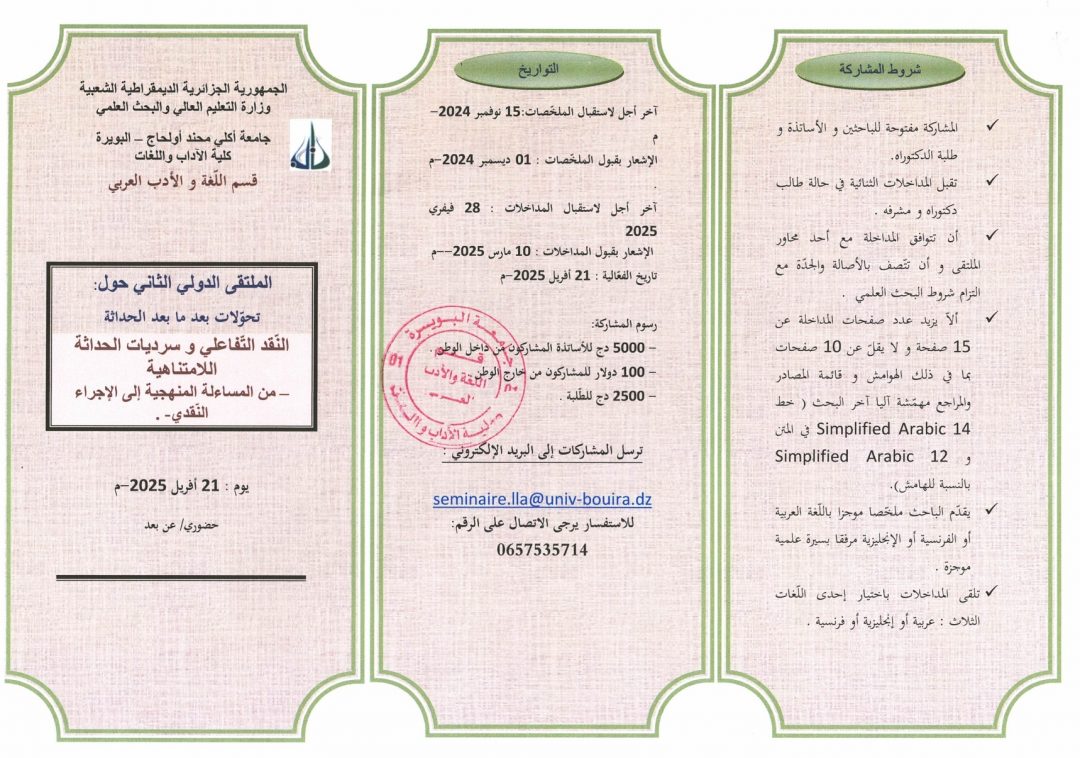 شروط المشاركة
✓ المشاركة مفتوحة للباحثين و الأساتذة و
طلبة الدكتوراه.
✓ تقبل المداخلات الثنائية في حالة طالب
دكتوراه و مشرفه .
✓ أن تتوافق المداخلة مع أحد محاور
الملتقى و أن تتّصف بالأصالة والجدّة مع
التزام شروط البحث العلمي .
✓ ألاّ يزيد عدد صفحات المداخلة عن
15 صفحة و لا يقلّ عن 10 صفحات
بما في ذلك الهوامش و قائمة المصادر
والمراجع مهمّشة آليا آخر البحث ( خط
Simplified Arabic 14 في المتن
و Simplified Arabic 12
بالنسبة للهامش).
✓ يقدّم الباحث ملخّصا موجزا باللّغة العربية
أو الفرنسية أو الإنجليزية مرفقا بسيرة علمية
موجزة .
✓ تلقى المداخلات باختيار إحدى اللّغات
الثلاث : عربية أو إنجليزية أو فرنسية .
التواريخ
آخر أجل لاستقبال الملخّصات:15 نوفمبر 2024–
م
الإشعار بقبول الملخّصات : 01 ديسمبر 2024–م
.
آخر أجل لاستقبال المداخلات : 28 فيفري
2025
الإشعار بقبول المداخلات : 10 مارس 2025––م
تاريخ الفعّالية : 21 أفريل 2025–م
رسوم المشاركة:
– 5000 دج للأساتذة المشاركون من داخل الوطن .
– 100 دولار للمشاركون من خارج الوطن
– 2500 دج للطّلبة .
جامعة البويرة
قسم
اللغة والأدب
01
كلية الآداب واللغات
ترسل المشاركات إلى البريد الإلكتروني :
seminaire.lla@univ-bouira.dz
للاستفسار يرجى الاتصال على الرقم:
0657535714
الجمهورية الجزائرية الديمقراطية الشعبية
وزارة التعليم العالي والبحث العلمي
جامعة أكلي محند أولحاج – البويرة
كلية الآداب واللغات
قسم اللّغة و الأدب العربي
الملتقى الدولي الثاني حول:
تحوّلات بعد ما بعد الحداثة
النّقد التّفاعلي و سرديات الحداثة
اللامتناهية
– من المساءلة المنهجية إلى الإجراء
النّقدي- .
يوم : 21 أفريل 2025–م
حضوري/ عن بعد